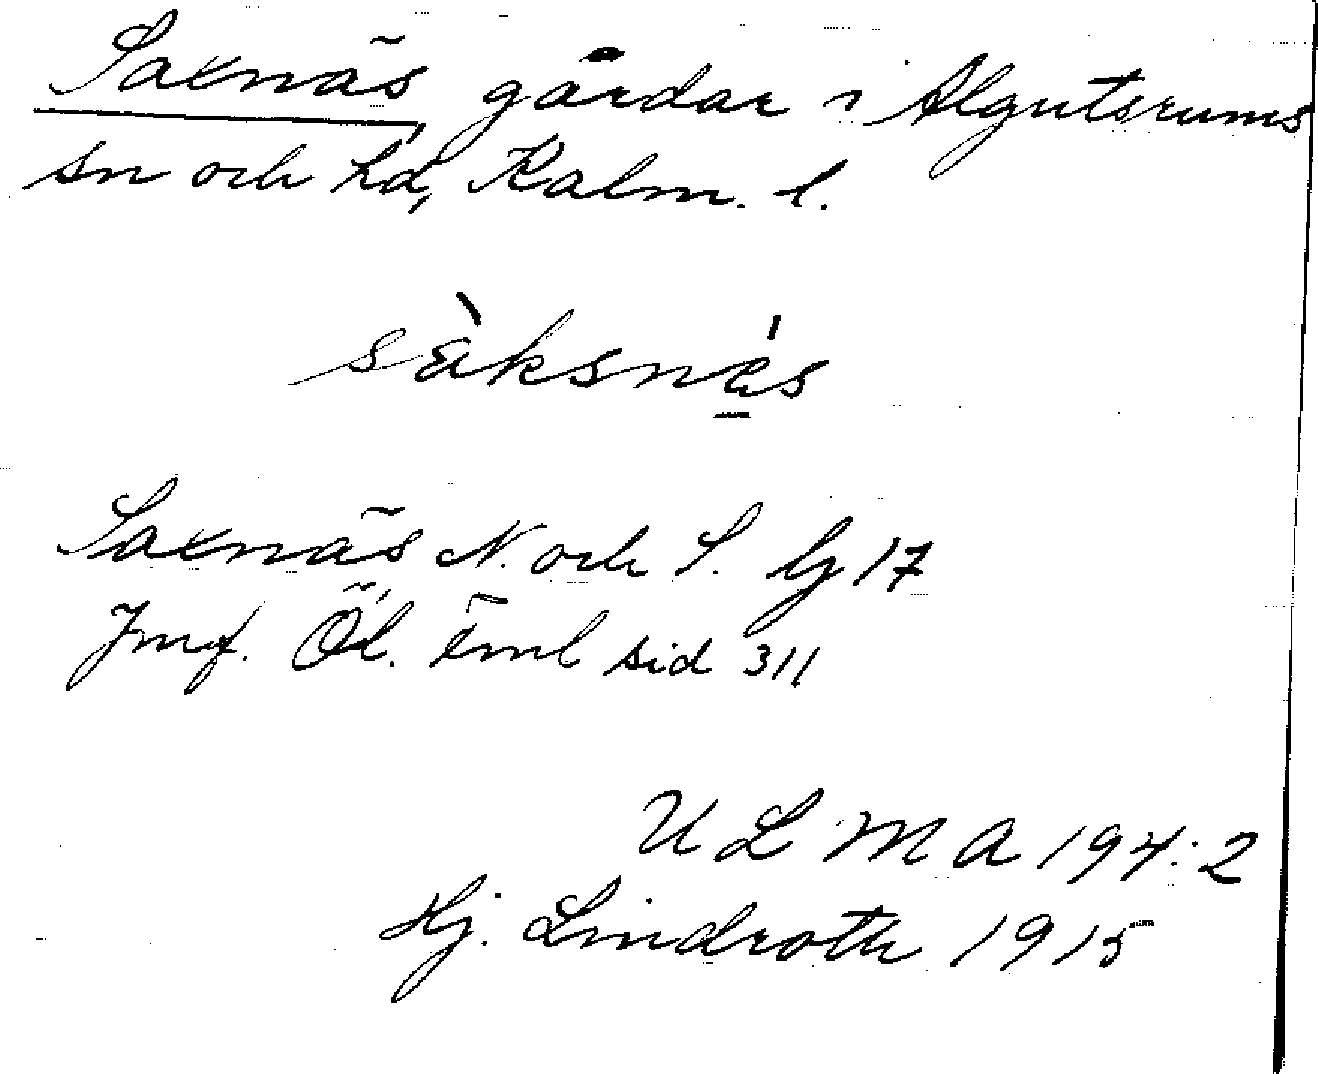 Saxnäs, gårdar i Algutsrums
sn och hd, Kalm. l.
sàksnä́s
Saxnäs N. och S. Gj 17
Jmf. Öl. Fml sid 311
ULMA 194:2
Hj. Lindroth 1915